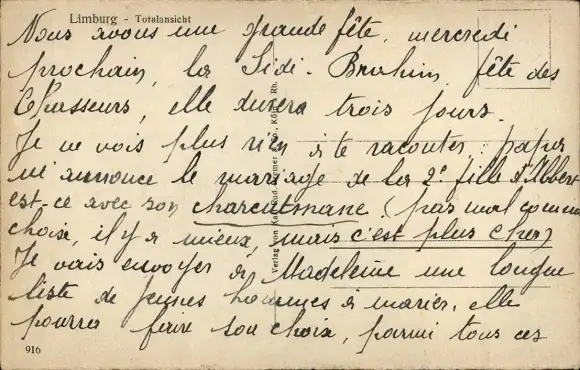 Limburg - Totalansicht
Nous avons une grande fête, mercredi
prochain, la Sidi-Brahim, fête des
Chasseurs, elle durera trois jours.
Je ne vois plus rien à te raconter; papa
m'annonce le mariage de la 2e fille d'Albert
est-ce avec son charcutmane (pas mal comme
choix, il y a mieux, mais c'est plus cher)
Je vais envoyer à Madeleine une longue
liste de jeunes hommes à marier, elle
pourra faire son choix, parmi tous ces
916
Verlag von Köln Rh.